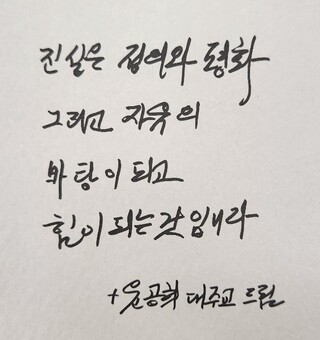 진실은 정의와 평화
그리고 자유의
바탕이 되고
힘이 되는 것입니다
+윤공희 대주교 드림